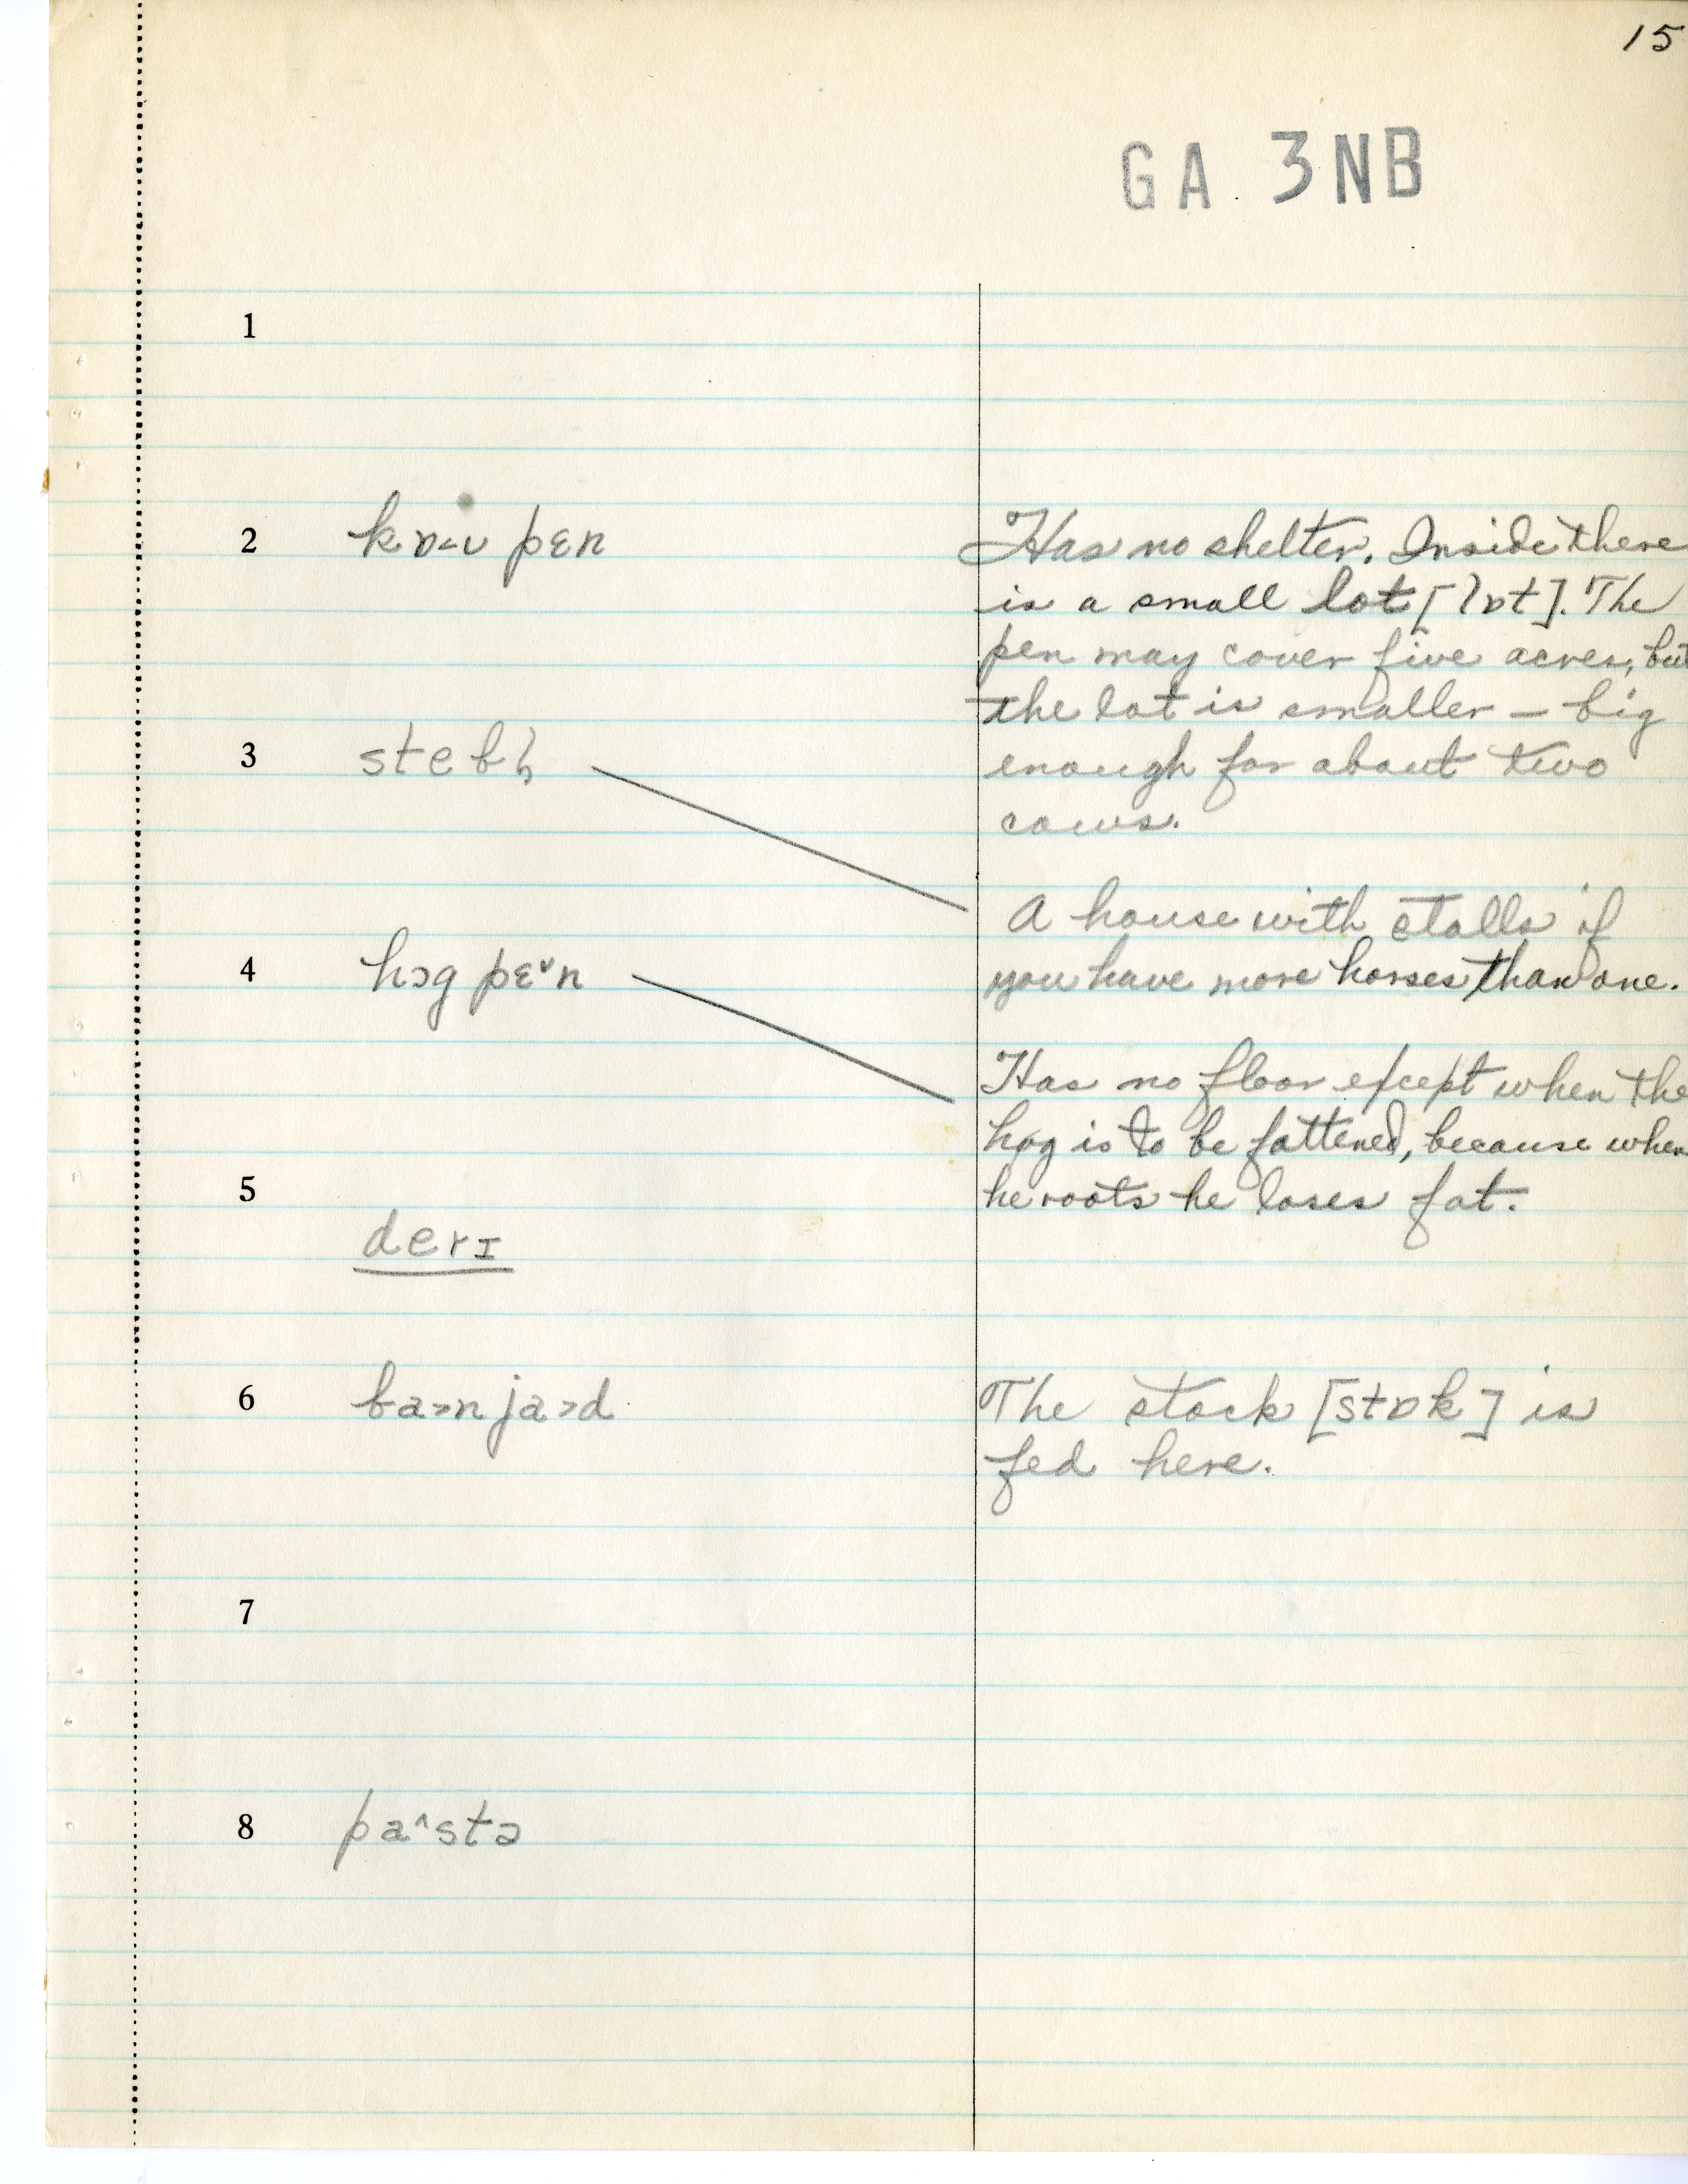 15
GA 3NB
1
2 kɒ˂ʊ pɛn
Has no shelter. Inside there
is a small lot [lɒt]. The
pen may cover five acres, but
the lot is smaller – big
3 stebl̩
enough for about two
cows.
A house with stalls if
4 hɔg pɛ˅n
you have more horses than one.
Has no floor except when the
hog is to be fattened, because when
5
he roots he loses fat.
derɪ
6 ba˃n ja˃d
The stock [stɒk] is
fed here.
7
8 pa˄stə